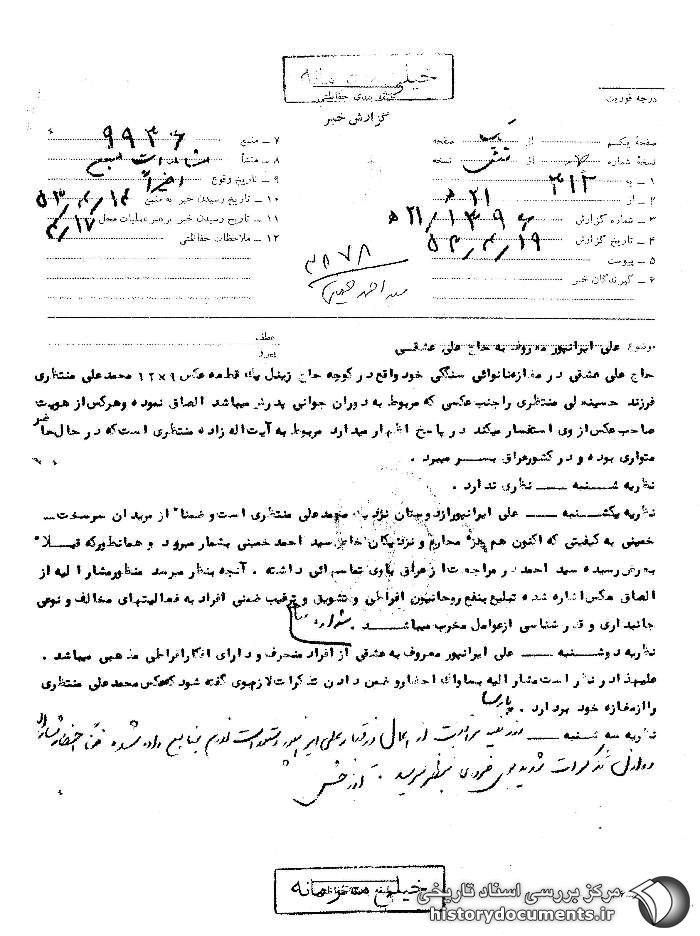 خیلی محرمانه
طبقه بندی حفاظتی
گزارش خبر
درجه فوریت
صفحه یکم از یک صفحه
نسخه شماره از شش نسخه
۱ ـ به ۳۱۲
۲ ـ از ۲۱ ﻫ
۳ ـ شماره گزارش ۲۱/۱۳۹۶ ﻫ
۴ ـ تاریخ گزارش ۵۳/۴/۱۹
۵ ـ پیوست
۶ ـ گیرندگان خبر
۷ ـ منبع ۹۹۳۶
۸ ـ منشأ مشاهدات منبع
۹ ـ تاریخ وقوع اخیراً
۱۰ ـ تاریخ رسیدن خبر به منبع ۵۳/۴/۱۴
۱۱ ـ تاریخ رسیدن خبر برهبر عملیات محل ۴/۱۷
۱۲ ـ ملاحظات حفاظتی
سید احمد خمینی
موضوع : علی ایرانپور معروف به حاج علی عشقی
عطف
پیرو
حاج علی عشقی در مغازه نانوائی سنگکی خود واقع در کوچه حاج زینل یک قطعه عکس ۹×۱۲ محمدعلی منتظری
فرزند حسینعلی منتظری را جنب عکسی که مربوط به دوران جوانی پدرش میباشد الصاق نموده و هرکس از هویت
صاحب عکس از وی استفسار میکند در پاسخ اظهار میدارد مربوط به آیت اله زاده منتظری است که در حال حاضر
متواری بوده و در کشور عراق بسر میبرد .
نظریه شنبه ـــ نظری ندارد .
نظریه یکشنبه ـــ علی ایرانپور از دوستان نزدیک محمدعلی منتظری است و ضمناً از مریدان سرسخت
خمینی به کیفیتی که اکنون هم جزء محارم و نزدیکان خاص سید احمد خمینی بشمار میرود و همانطورکه قبلاً
بعرض رسیده سید احمد در مراجعت از عراق باوی تماسهائی داشته . آنچه بنظر میرسد منظور مشارالیه از
الصاق عکس اشاره شده تبلیغ بنفع روحانیون افراطی و تشویق و ترغیب ضمنی افراد به فعالیتهای مخالف و نوعی
جانبداری و قدر شناسی از عوامل مخرب میباشد .
نظریه دوشنبه ـــ علی ایرانپور معروف به عشقی از افراد منحرف و دارای افکار افراطی مذهبی میباشد .
علیهذا در نظر است مشارالیه بساواک احضار و ضمن دادن تذکرات لازم بوی گفته شود که عکس محمدعلی منتظری
را از مغازه خود بردارد . پارسا
نظریه سه شنبه ـــ در زمینه مراقبت از اعمال و رفتار علی ایرانپور دستورات لازم بمنابع داده شده ضمناً احضار مشارالیه
تذکرات ضروری بنظر میرسد .
خیلی محرمانه
مرکز بررسی اسناد تاریخی
historydocuments.ir